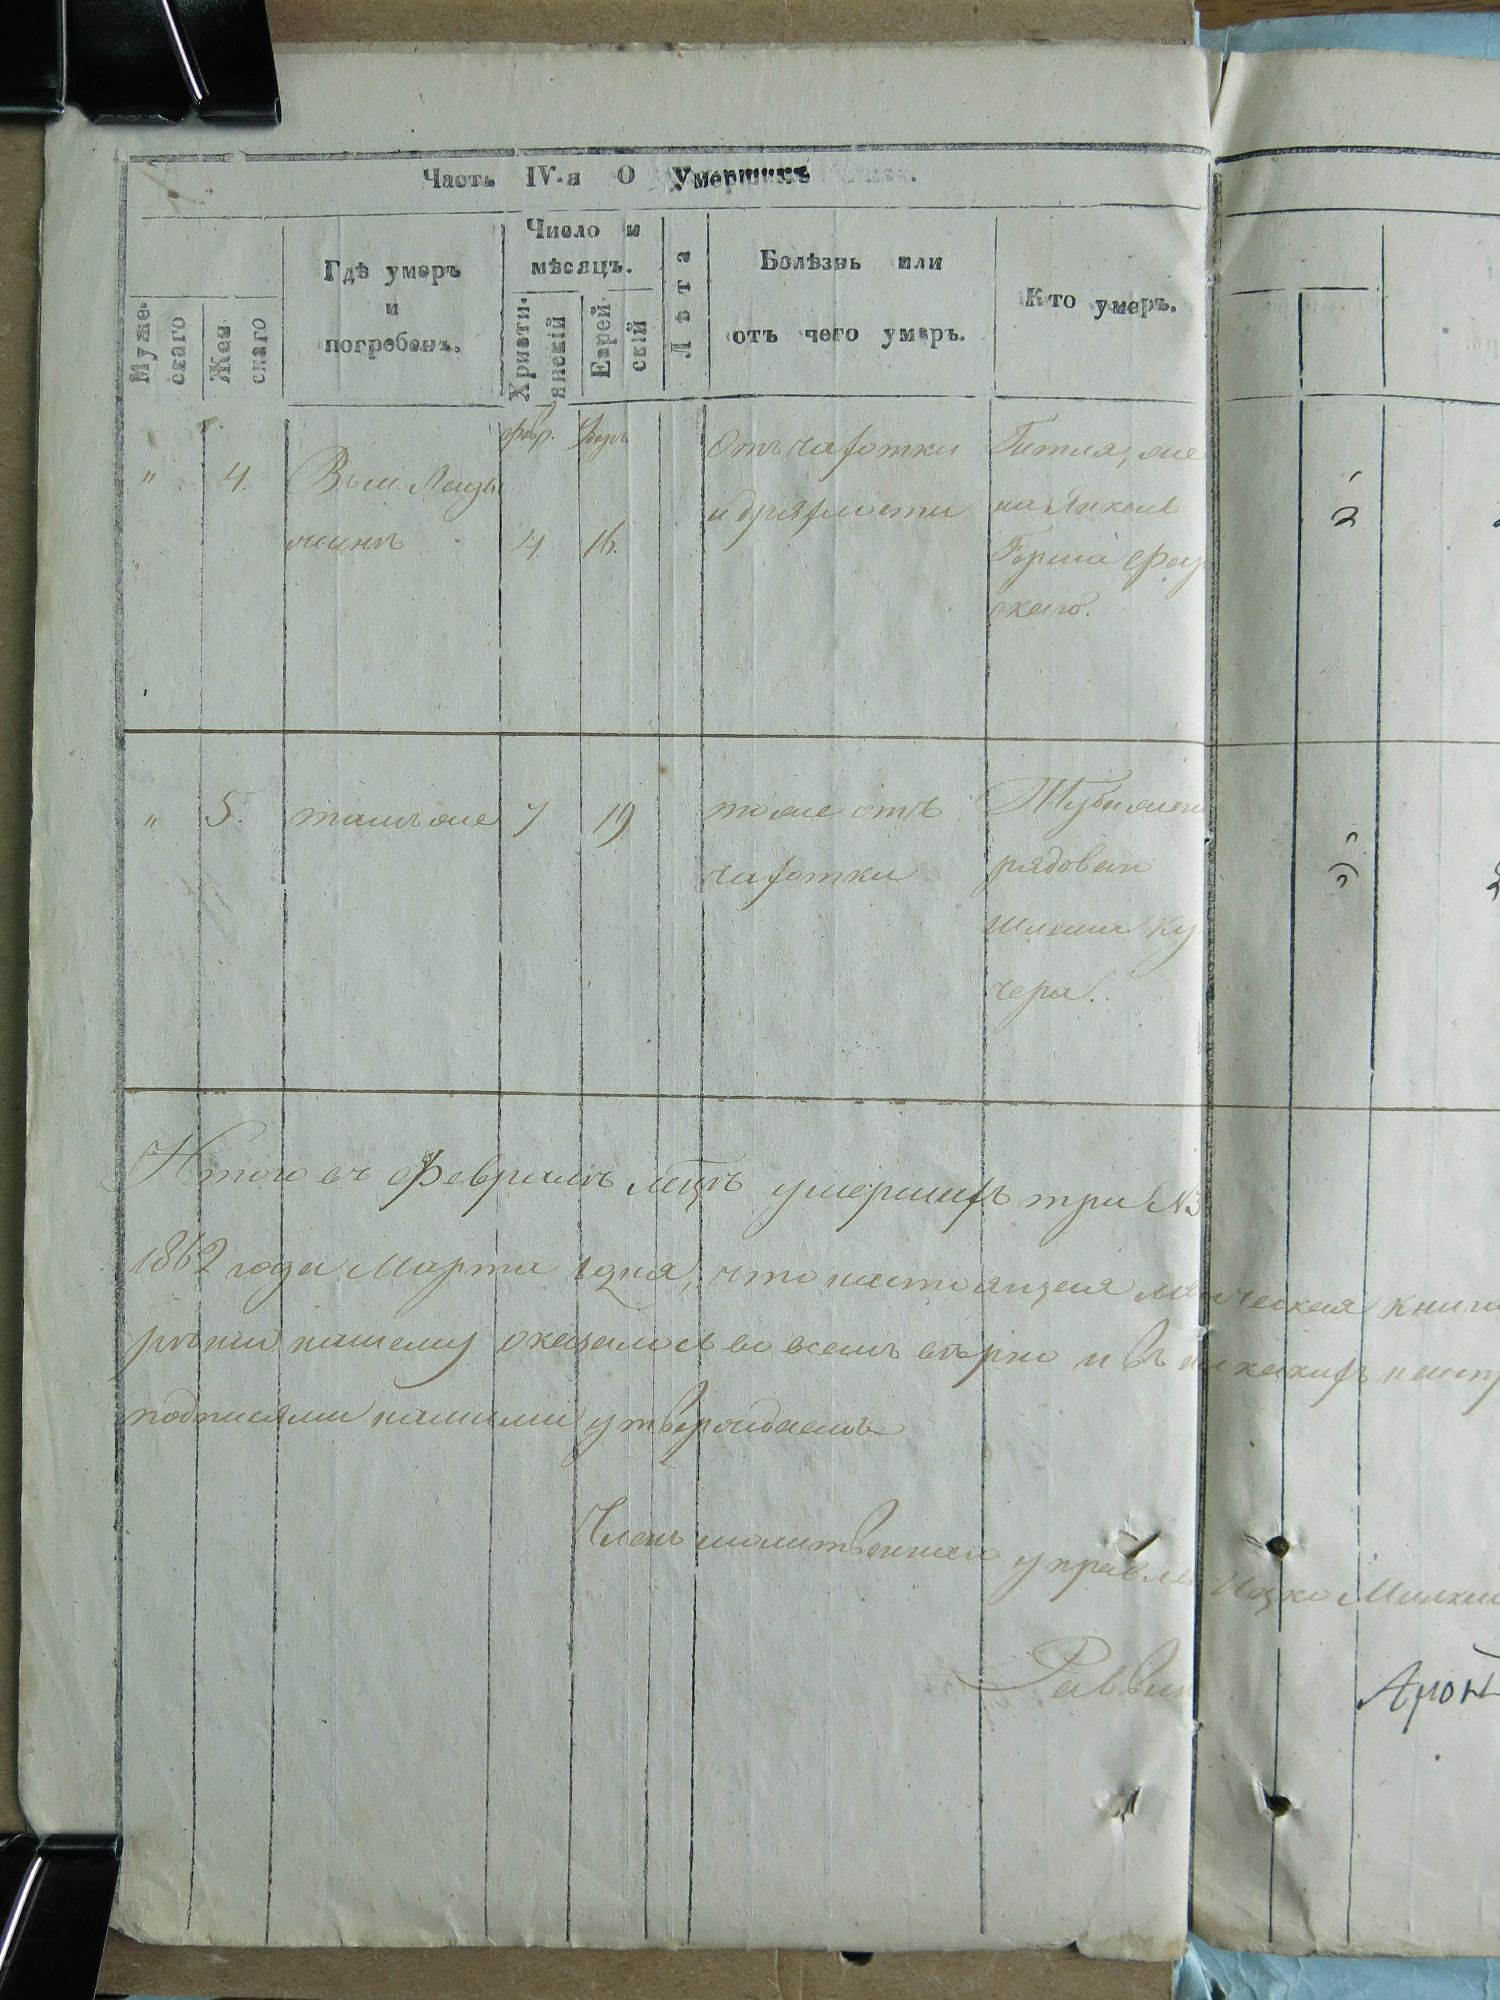 Часть IV-я О Умершихъ
Муже-
скаго
Жен
скаго
Гдѣ умеръ
и
погребенъ.
Число и
мѣсяцъ.
Христи-
янскій
Еврей-
скій
Лѣта
Болѣзнь или
отъ чего умеръ.
Кто умеръ.
" 4. Въ м.
4 16.
Февр.
Отъ чахотки
и дряхлости
Гитля, же
на Янкель
Герша
скаго.
" 5. тамъ же 7 19
тоже отъ
чахотки
рядоваго
Шлема Ку
чера.
2
Итого въ Февралѣ мцѣ умершихъ три №3
1862 года Марта 1 дня, что настоящая книга
нашему оказалось во всемъ вѣрно и въ никакихъ
подписями нашими утверждаемъ
Членъ молитвеннаго управле Ицко
Раввин